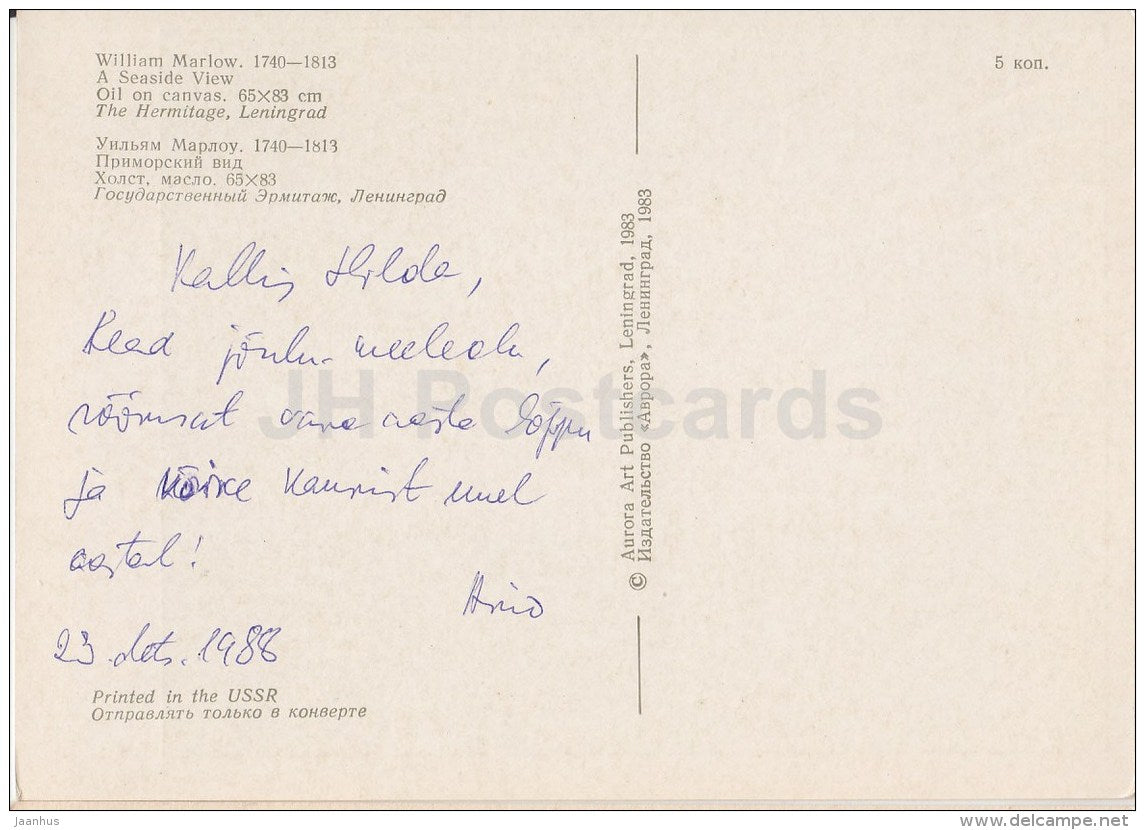 William Marlow. 1740—1813
A Seaside View
Oil on canvas. 65×83 cm
The Hermitage, Leningrad
Уильям Марлоу. 1740—1813
Приморский вид
Холст, масло. 65×83
Государственный Эрмитаж, Ленинград
Kallis Hilda,
Head jõulu-meeleolu,
rõõmsat vana aasta lõppu
ja kõike kaunist uuel
aastal!
23 dets. 1988
Printed in the USSR
Отправлять только в конверте
© Aurora Art Publishers, Leningrad, 1983
Издательство «Аврора», Ленинград, 1983
5 коп.
JH Postcards
Jaanhus
www.delcampe.net